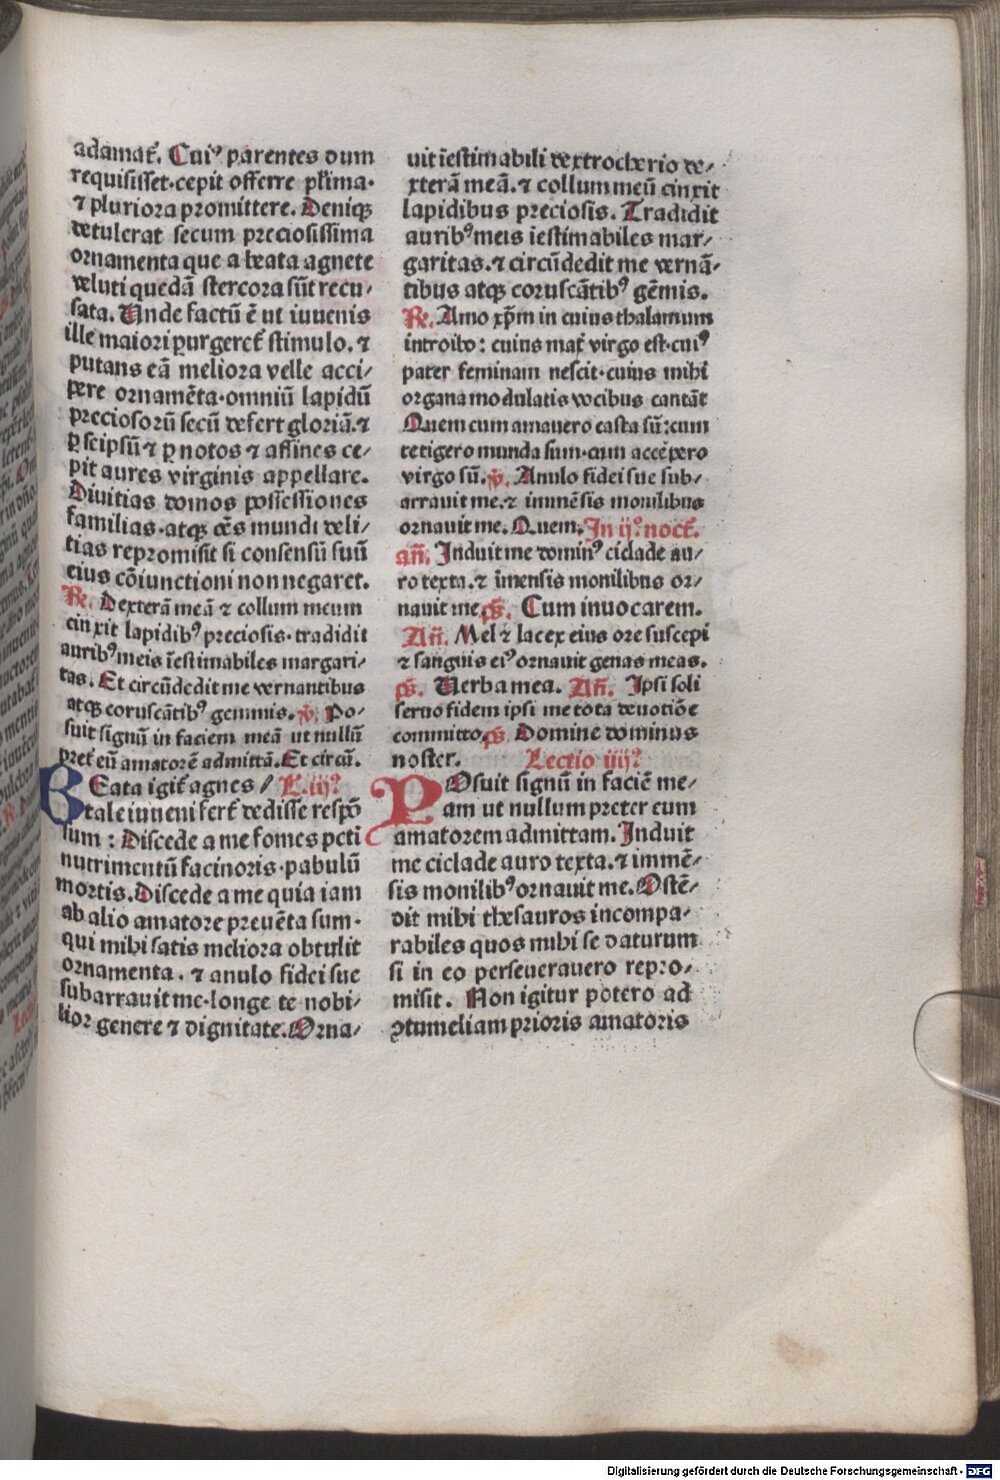 adamat᷑. Cui⁹ parentes dum
requisisset·cepit offerre pl᷑ima·
⁊ pluriora promittere. Deniqꝫ
detulerat secum preciosissima
ornamenta que a beata agnete
veluti quedā stercora sūt recu⸗
sata. Unde factū ē ut iuuenis
ille maiori ꝑurgeret᷑ stimulo. ⁊
putans eā meliora velle acci⸗
pere ornamēta·omniū lapidū
preciosorū secū defert gloriā.⁊
ꝑ seipsū ⁊ ꝑ notos ⁊ affines ce⸗
pit aures virginis appellare.
Diuitias domos possessiones
familias·atqꝫ oēs mundi deli⸗
tias repromisit si consensū suū
eius cōiunctioni non negaret.
℞. Dexterā meā ⁊ collum meum
cinxit lapidib⁹ preciosis·tradidit
aurib⁹ meis īestimabiles margari⸗
tas. Et circūdedit me vernantibus
atqꝫ coruscātib⁹ gemmis. ℣. Po⸗
suit signū in faciem meā ut nullū
pret᷑ eū amatorē admittā. Et circū.
BEata igit᷑ agnes / L. iij.ͣ
tale iuueni fert᷑ dedisse respō
sum : Discede a me fomes pcti
nutrimentū facinoris·pabulū
mortis. Discede a me quia iam
ab alio amatore preuēta sum·
qui mihi satis meliora obtulit
ornamenta. ⁊ anulo fidei sue
subarrauit me·longe te nobi⸗
lior genere ⁊ dignitate. Orna⸗
uit īestimabili dextrocherio de⸗
xterā meā.⁊ collum meū cinxit
lapidibus preciosis. Tradidit
aurib⁹ meis īestimabiles mar⸗
garitas.⁊ circūdedit me vernā⸗
tibus atqꝫ coruscātib⁹ gēmis.
℞. Amo xp̄m in cuius thalamum
introibo : cuius mat᷑ virgo est·cui⁹
pater feminam nescit·cuius mihi
organa modulatis vocibus cantāt
Quem cum amauero casta sū:cum
tetigero munda sum·cum accēpero
virgo sū. ℣. Anulo fidei sue sub⸗
arrauit me.⁊ inmēsis monilibus
ornauit me. Quem. In ij.° noct᷑.
an̄. Induit me domin⁹ ciclade au⸗
ro texta.⁊ īmensis monilibus or⸗
nauit me. ps̄. Cum inuocarem.
An̄. Mel ⁊ lac ex eius ore suscepi
⁊ sanguis ei⁹ ornauit genas meas.
ps̄. Uerba mea. An̄. Ipsi soli
seruo fidem ipsi me tota deuotiōe
committo. ps̄. Domine dominus
noster. Lectio iiij.ͣ
POsuit signū in faciē me⸗
am ut nullum preter eum
amatorem admittam. Induit
me ciclade auro texta.⁊ immē⸗
sis monilib⁹ ornauit me. Ostē⸗
dit mihi thesauros incompa⸗
rabiles quos mihi se daturum
si in eo perseuerauero repro⸗
misit. Non igitur potero ad
ꝯtumeliam prioris amatoris
Digitalisierung gefördert durch die Deutsche Forschungsgemeinschaft - DFG